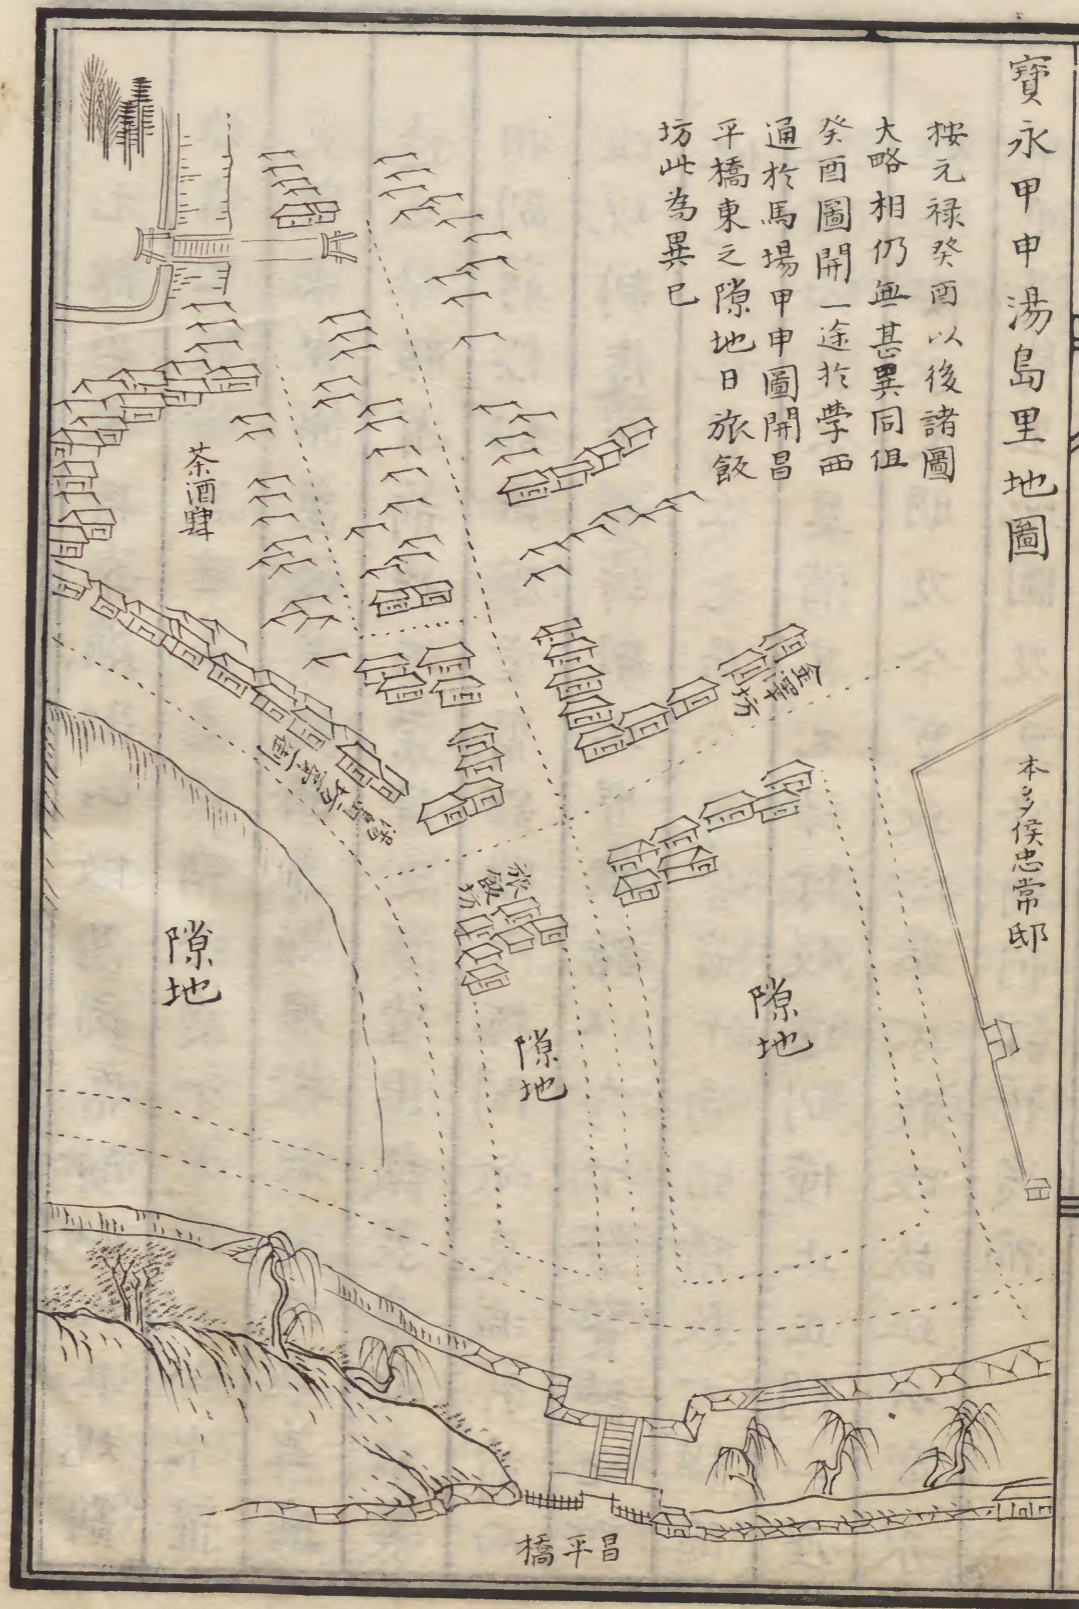 寶永甲申湯島里地圖
按元禄癸酉以後諸圖
大略相仍無甚異同但
癸酉圖開一途於學西
通於馬場甲申圖開昌
平橋東之隙地日旅飯
坊此為異已
本多侯忠常邸
金澤坊
茶酒肆
旅飯坊
隙地
隙地
隙地
昌平橋